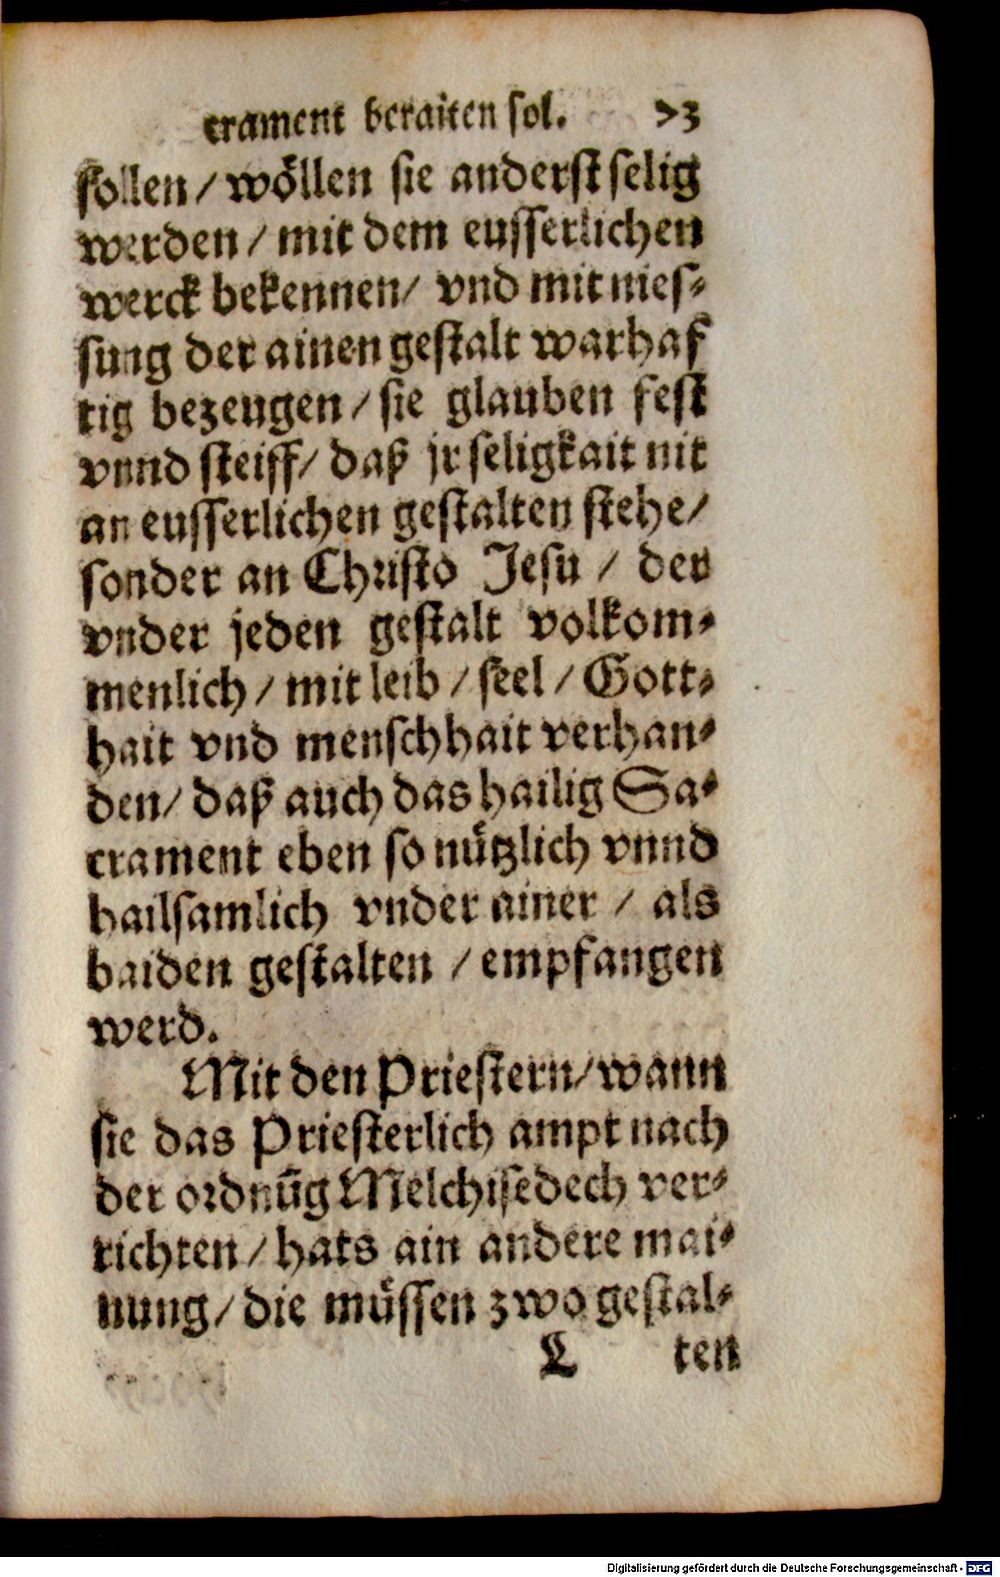 crament beraiten sol. 73
sollen / wöllen sie anderst selig
werden / mit dem eusserlichen
werck bekennen / vnd mit nies-
sung der ainen gestalt warhaf
tig bezeugen / sie glauben fest
vnnd steiff / daß jr seligkait nit
an eusserlichen gestalten stehe /
sonder an Christo Jesu / der
vnder jeden gestalt volkom-
menlich / mit leib / seel / Gott-
hait vnd menschhait verhan-
den / daß auch das hailig Sa-
crament eben so nützlich vnnd
hailsamlich vnder ainer / als
baiden gestalten / empfangen
werd.
Mit den Priestern / wann
sie das Priesterlich ampt nach
der ordnũg Melchisedech ver-
richten / hats ain andere mai-
nung / die müssen zwo gestal-
L ten
Digitalisierung gefördert durch die Deutsche Forschungsgemeinschaft - DFG